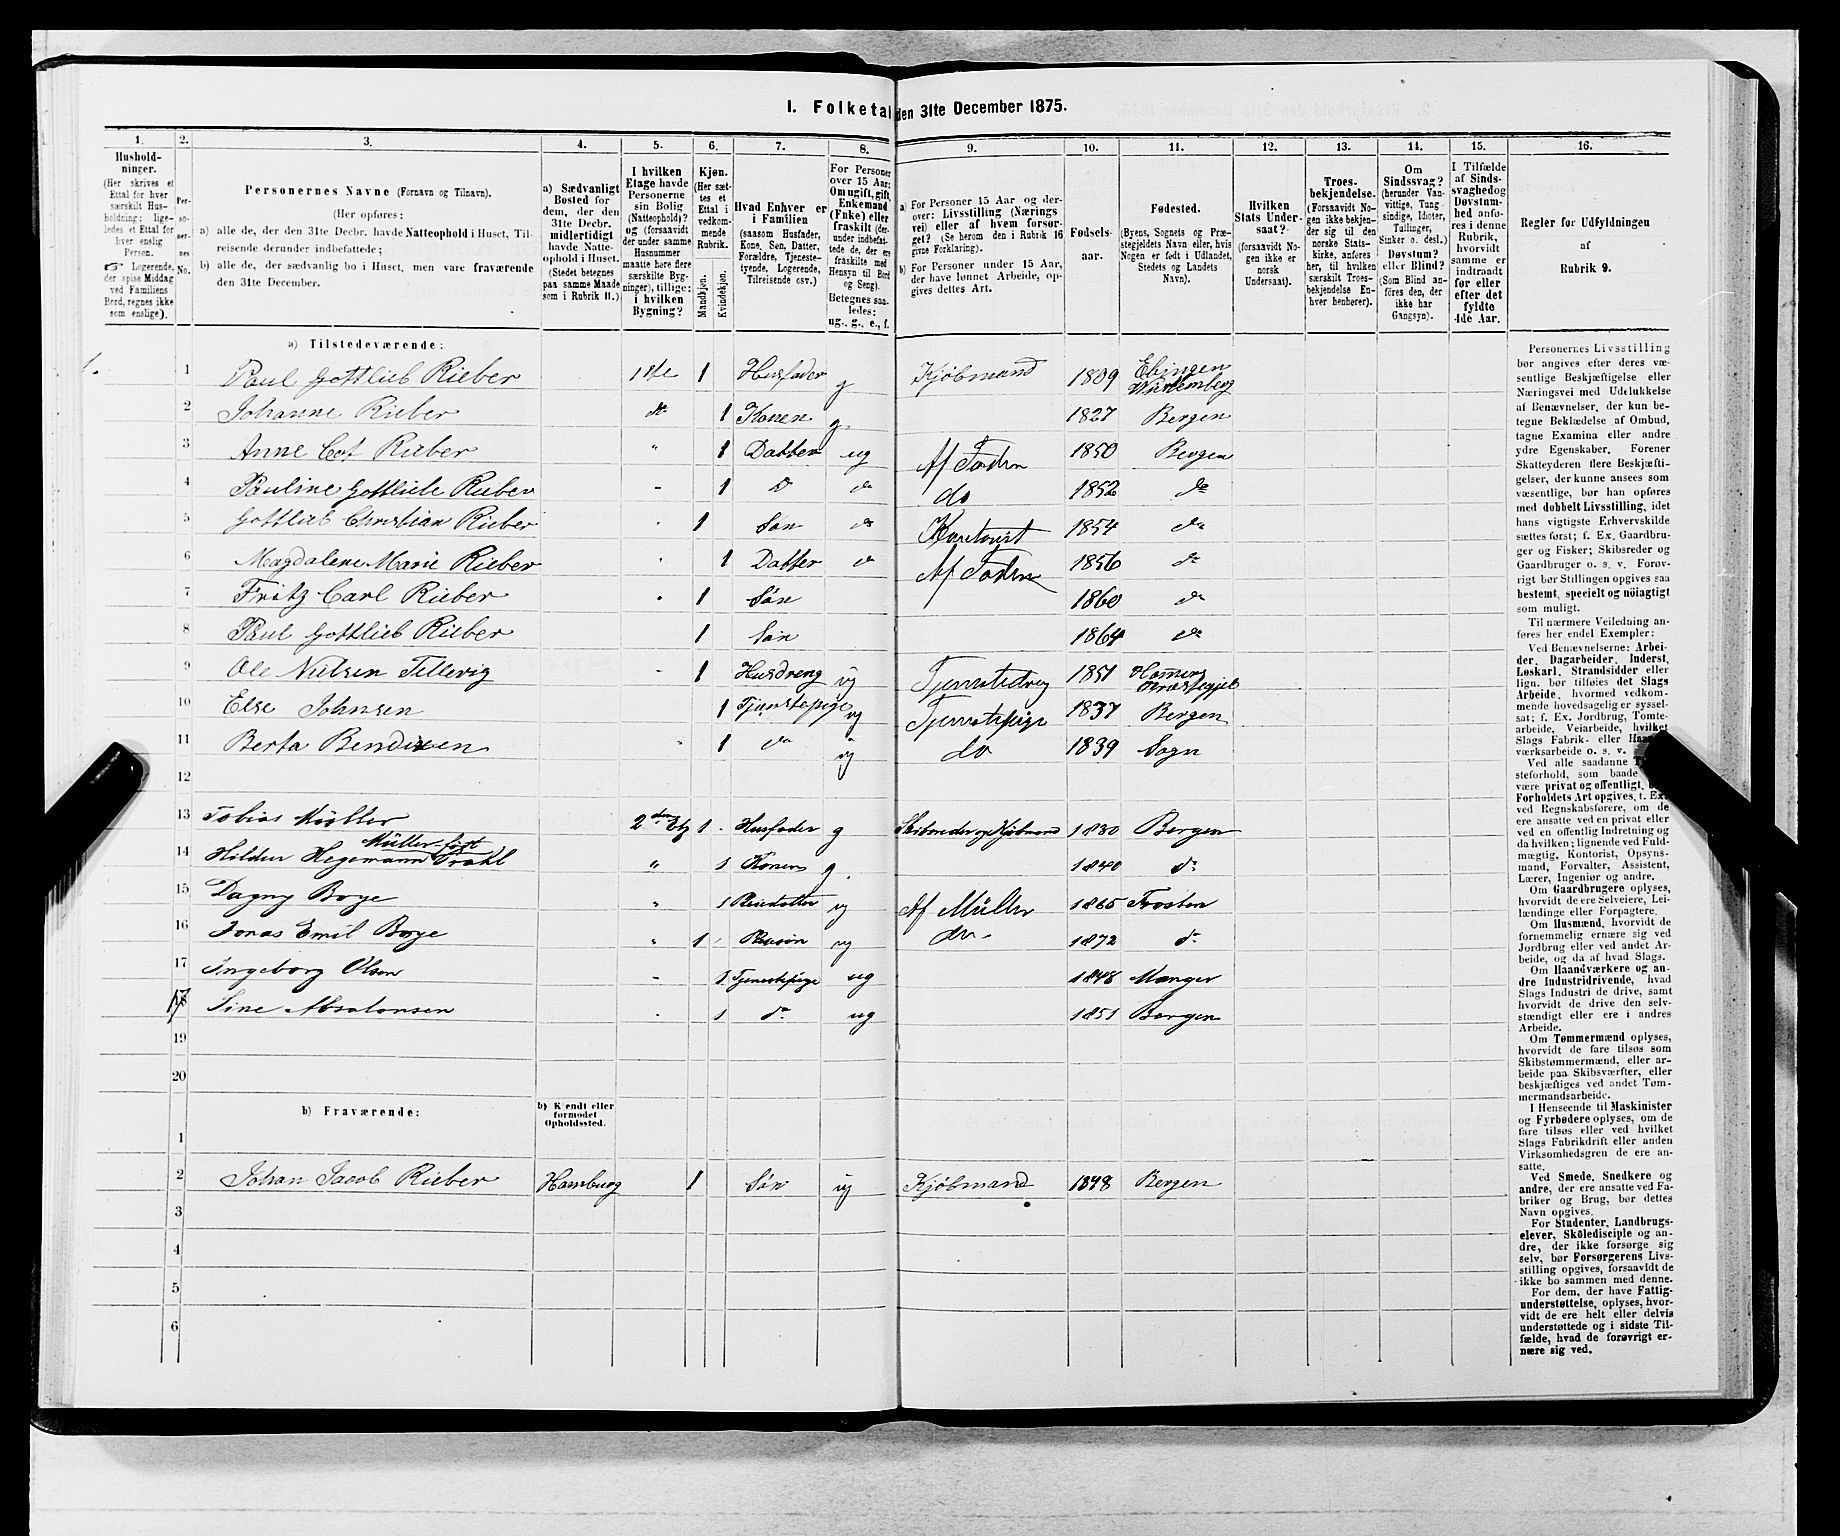 I. Folketal den 31te December 1875.
1.
Hushold-
ninger.
(Her skrives et
Ettal for hver
særskilt Hus-
holdning; lige-
ledes et Ettal for
hver enslig
Person.
☞ Logerende,
der spise Middag
ved Familiens
Bord, regnes ikke
som enslige).
2.
Per-
so-
ner-
nes
No.
3.
Personernes Navne (Fornavn og Tilnavn).
(Her opføres:
a) alle de, der den 31te Decbr. havde Natteophold i Huset, Til-
reisende derunder indbefattede;
b) alle de, der sædvanlig bo i Huset, men vare fraværende
den 31te December.
4.
a) Sædvanligt
Bosted for
dem, der den
31te Decbr.
midlertidigt
havde Natte-
ophold i Huset.
(Stedet betegnes
paa samme Maade
som i Rubrik 11.)
5.
I hvilken
Etage havde
Personerne
sin Bolig
(Natteophold)?
og (forsaavidt
der under samme
Husnummer
maatte høre flere
særskilte Byg-
ninger), tillige:
i hvilken
Bygning?
6.
Kjøn.
(Her sæt-
tes et
Ettal i
vedkom-
mende
Rubrik.
Mandkjøn.
Kvindekjøn.
7.
Hvad Enhver er
i Familien
(saasom Husfader,
Kone, Søn, Datter,
Forældre, Tjeneste-
tyende, Logerende,
Tilreisende osv.)
8.
For Personer
over 15 Aar:
Om ugift, gift,
Enkemand
(Enke) eller
fraskilt (der-
under indbefat-
tede de, der ere
fraskilte med
Hensyn til Bord
og Seng).
Betegnes saa-
ledes:
ug., g., e., f.
9.
a) For Personer 15 Aar og der-
over: Livsstilling (Nærings
vei) eller af hvem forsør-
get? (Se herom den i Rubrik 16
givne Forklaring).
b) For Personer under 15 Aar,
der have lønnet Arbeide, op-
gives dettes Art.
10.
Fødsels-
aar.
11.
Fødested.
(Byens, Sognets og Præ-
stegjeldets Navn eller, hvis
Nogen er født i Udlandet,
Stedets og Landets
Navn).
12.
Hvilken
Stats Under-
saat?
(forsaavidt No-
gen ikke er
norsk
Undersaat).
13.
Troes-
bekjendelse.
(Forsaavidt No-
gen ikke bekjen-
der sig til den
norske Stats-
kirke, anføres
her, til hvilken
særskilt Troes-
bekjendelse En-
hver henhører).
14.
Om
Sindssvag?
(herunder Van-
vittige, Tung
sindige, Idioter,
Tullinger,
Sinker o. desl.)
Døvstum?
eller Blind?
(Som Blind an-
føres den, der
ikke har
Gangsyn).
15.
I Tilfælde
af Sinds-
svaghed og
Døvstum-
hed anfø-
res i denne
Rubrik,
hvorvidt
samme er
indtraadt
før eller
efter det
fyldte
4de Aar.
16.
Regler for Udfyldningen
af
Rubrik 9.
a) Tilstedeværende:
1. 1 Paul Gottlieb Rieber 1ste 1 Husfader g Kjøbmand 1809 Ebingen Würtemberg
2 Johanne Rieber do 1 Konen g. 1827 Bergen
3 Anne Cat Rieber " 1 Datter ug Af Faderen 1850 Bergen
4 Pauline Gottliebe Rieber " 1 D do do 1852 do
5 Gottlieb Christian Rieber " 1 Søn do Kontorist 1854 do
6 Magdalene Marie Rieber " 1 Datter do Af Faderen 1856 do
7 Fritz Carl Rieber " 1 Søn 1860 do
8 Paul Gottlieb Rieber 1 Søn 1864 do
9 Ole Nielsen Tellevig " 1 Husdreng ug Tjenestedreng 1851 Hammers Præstegjeld
10 Else Johnsen 1 Tjenstepige ug Tjenestepige 1837 Bergen
11 Berta Bendixen " 1 do ug do 1839 Sogn
12
13 Tobias Møller 2den Etg 1 Husfader g Skibsreder og Kjøbmand 1830 Bergen
14 Hilder Hegemann Müller født Trahl " 1 Konen g. 1840 do
15 Dagny Borge " 1 Pleiedatter ug Af Müller 1865 Frosten
16 Jonas Emil Borge " 1 Pleiesøn ug do 1872 do
17 Ingeborg Olsen " 1 Tjenestepige ug 1848 Manger
18 Sine Absalonsen " 1 do ug 1851 Bergen
19
20
b) Fraværende:
b) Kjendt eller
formodet
Opholdssted.
1
2 Johan Jacob Rieber Hamburg 1 Søn ug Kjøbmand 1848 Bergen
3
4
5
6
Personernes Livsstilling
bør angives efter deres væ-
sentlige Beskjæftigelse eller
Næringsvei med Udelukkelse
af Benævnelser, der kun be-
tegne Beklædelse af Ombud,
tagne Examina eller andre
ydre Egenskaber. Forener
Skatteyderen flere Beskjæfti-
gelser, der kunne ansees som
væsentlige, bør han opføres
med dobbelt Livsstilling, idet
hans vigtigste Erhvervskilde
sættes først; f. Ex. Gaardbru-
ger og Fisker; Skibsreder og
Gaardbruger o. s. v. Forøv-
rigt bør Stillingen opgives saa
bestemt, specielt og nöiagtigt
som muligt.
Til nærmere Veiledning an-
føres her endel Exempler:
Ved Benævnelserne: Arbei-
der, Dagarbeider, Inderst,
Løskarl, Strandsidder eller
lign. bør tilføies det Slags
Arbeide, hvormed vedkom-
mende hovedsagelig er syssel-
sat; f. Ex. Jordbrug, Tomte-
arbeide, Veiarbeide, hvilket
Slags Fabrik- eller Haand-
værksarbeide o. s. v.
Ved alle saadanne
steforhold, som baade
være privat og offentligt,
Forholdets Art opgives, t. Ex.
ved Regnskabsførere, om de
ere ansatte ved en privat eller
ved en offentlig Indretning og
da hvilken; lignende ved Fuld-
mægtig, Kontorist, Opsyns-
mand, Forvalter, Assistent,
Lærer, Ingeniør og andre.
Om Gaardbrugere oplyses,
hvorvidt de ere Selveiere, Lei-
lændinge eller Forpagtere.
Om Husmænd, hvorvidt de
fornemmelig ernære sig ved
Jordbrug eller ved andet Ar-
beide, og da af hvad Slags.
Om Haandværkere og an-
dre Industridrivende, hvad
Slags Industri de drive, samt
hvorvidt de drive den selv-
stændigt eller ere i andres
Arbeide.
Om Tømmermænd oplyses,
hvorvidt de fare tilsøs som
Skibstømmermænd, eller ar-
beide paa Skibsværfter, eller
beskjæftiges ved andet Tøm-
mermandsarbeide.
I Henseende til Maskinister
og Fyrbødere oplyses, om de
fare tilsøs eller ved hvilket
Slags Fabrikdrift eller anden
Virksomhedsgren de ere an-
satte.
Ved Smede, Snedkere og
andre, der ere ansatte ved Fa-
briker og Brug, bør dettes
Navn opgives.
For Studenter, Landbrugs-
elever, Skoledisciple og an-
dre, der ikke forsørge sig
selv, bør Forsørgerens Livs-
stilling opgives, forsaavidt de
ikke bo sammen med denne.
For dem, der have Fattig-
understøttelse, oplyses, hvor-
vidt de ere helt eller delvis
understøttede og i sidste Til-
fælde, hvad de forøvrigt er-
nære sig ved.